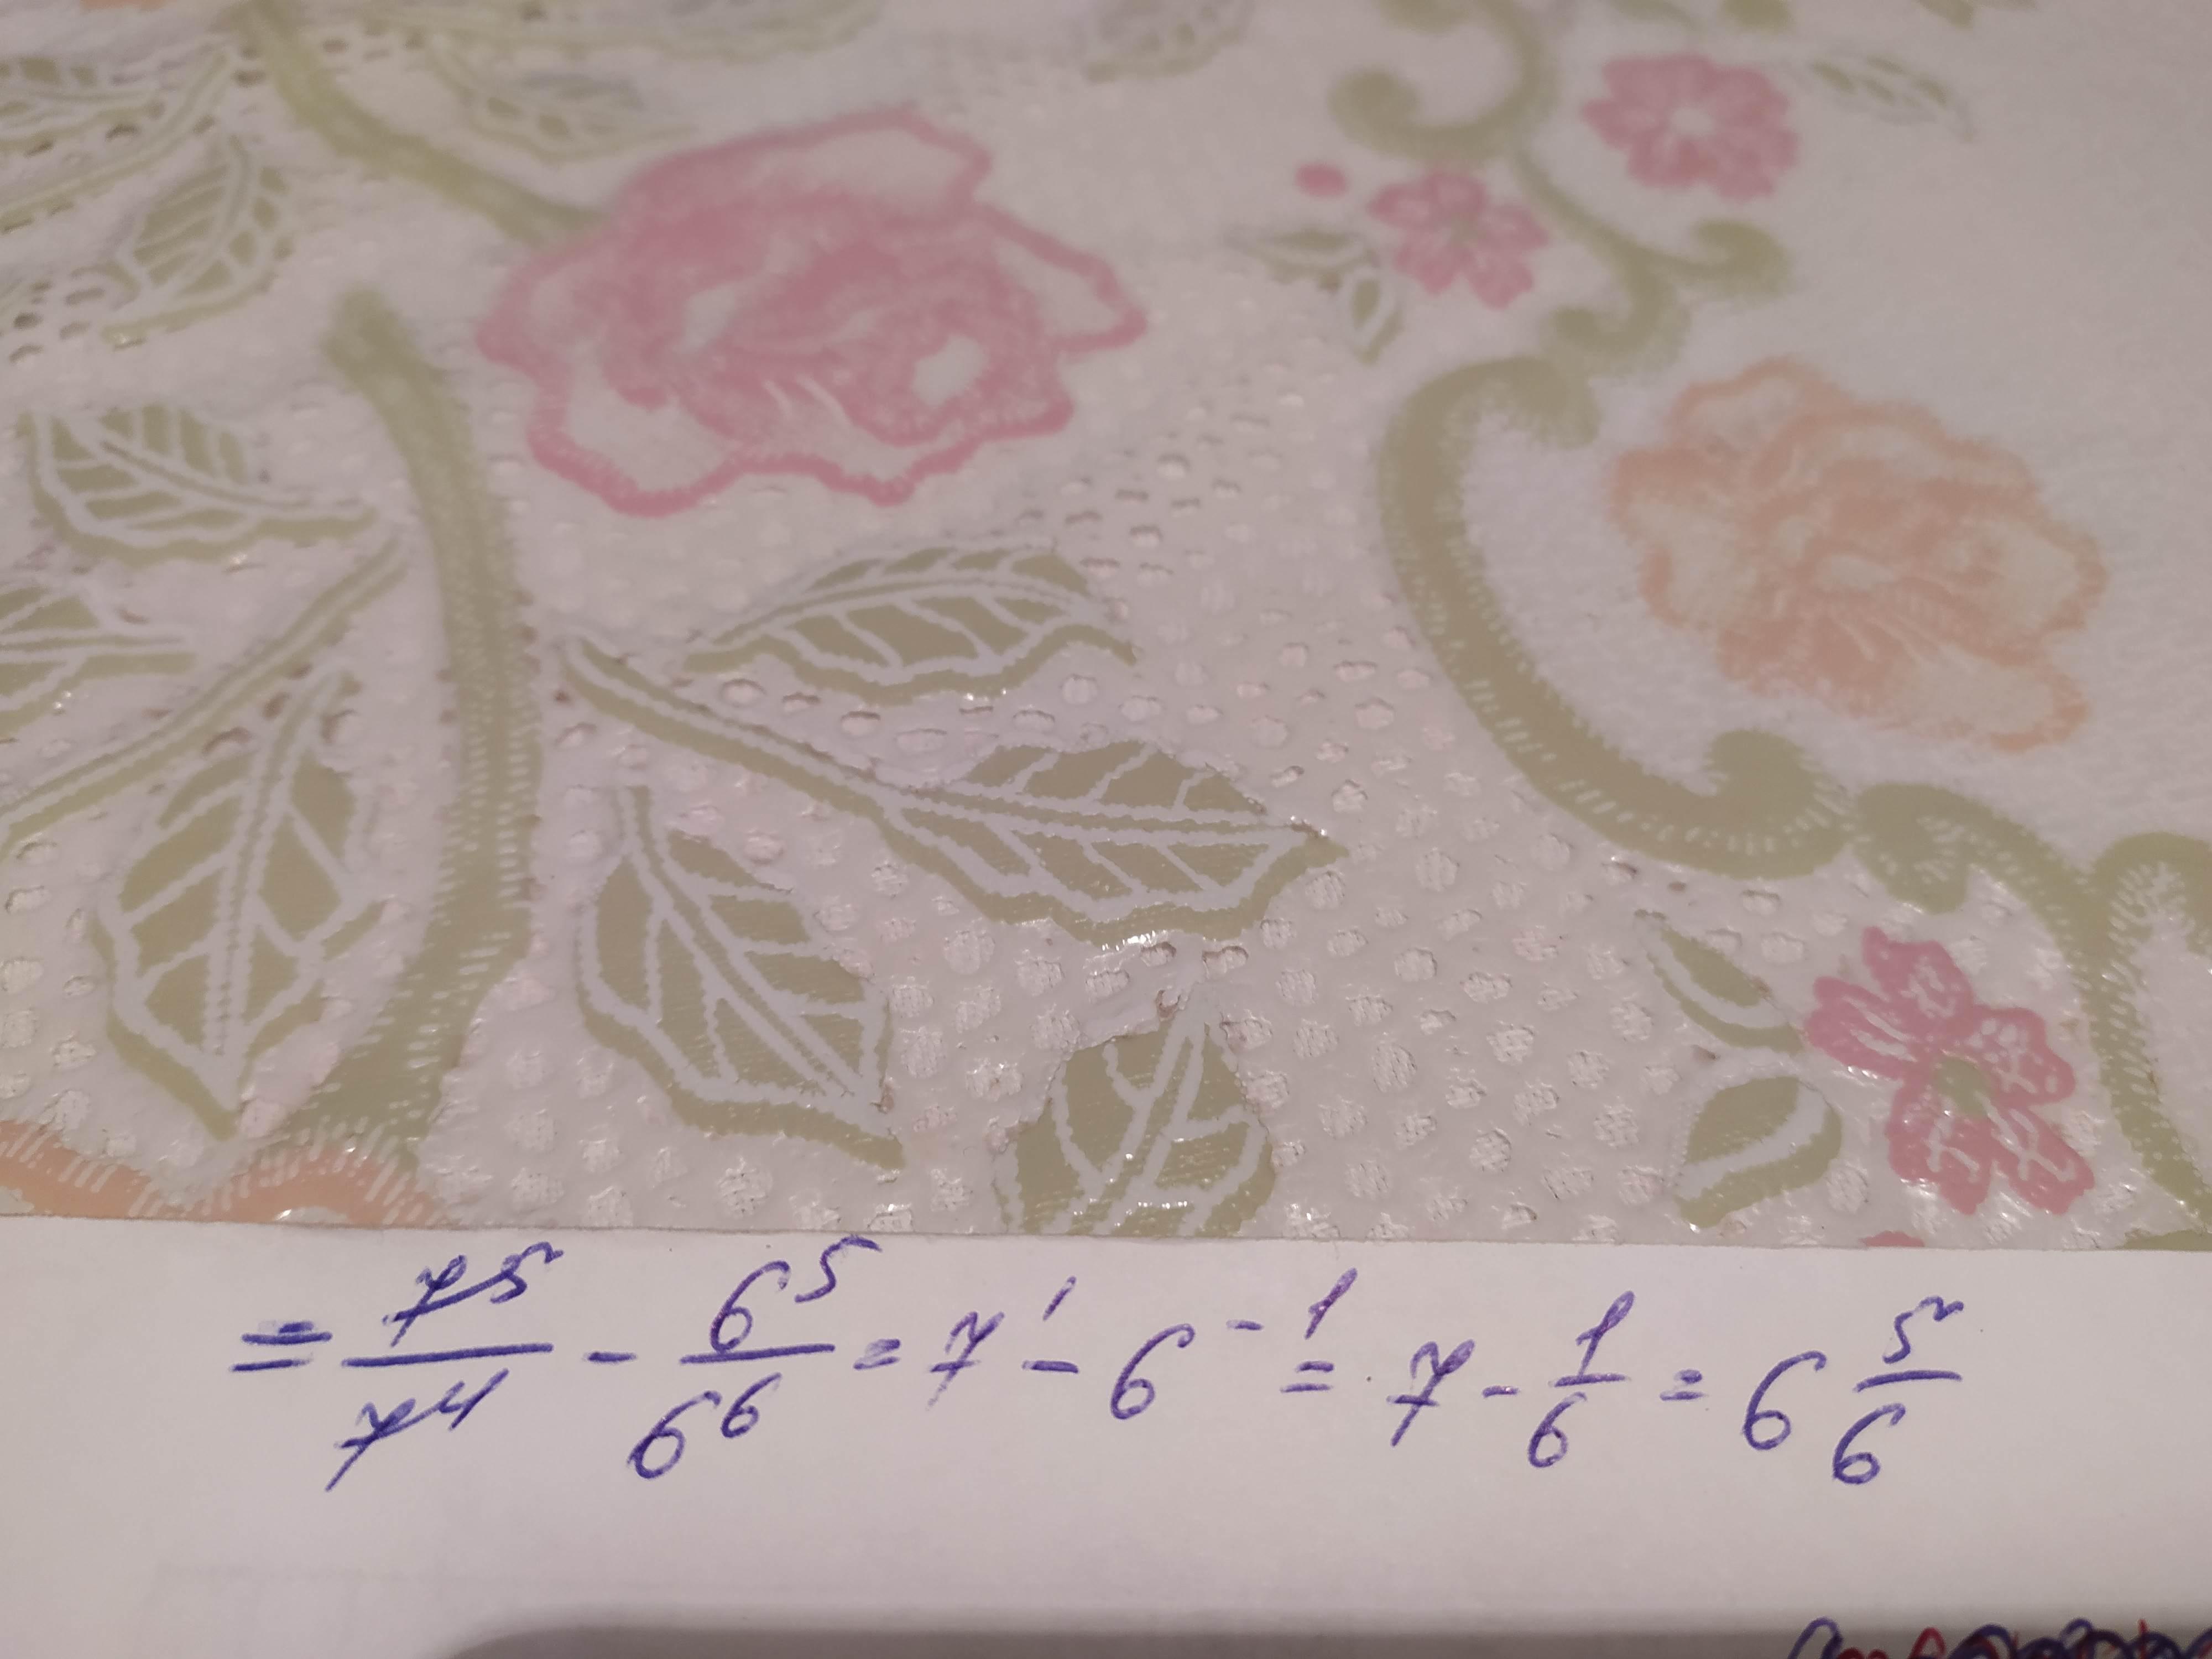 = 7⁵/7⁴ - 6⁵/6⁶ = 7¹ - 6⁻¹ = 7 - 1/6 = 6 5/6